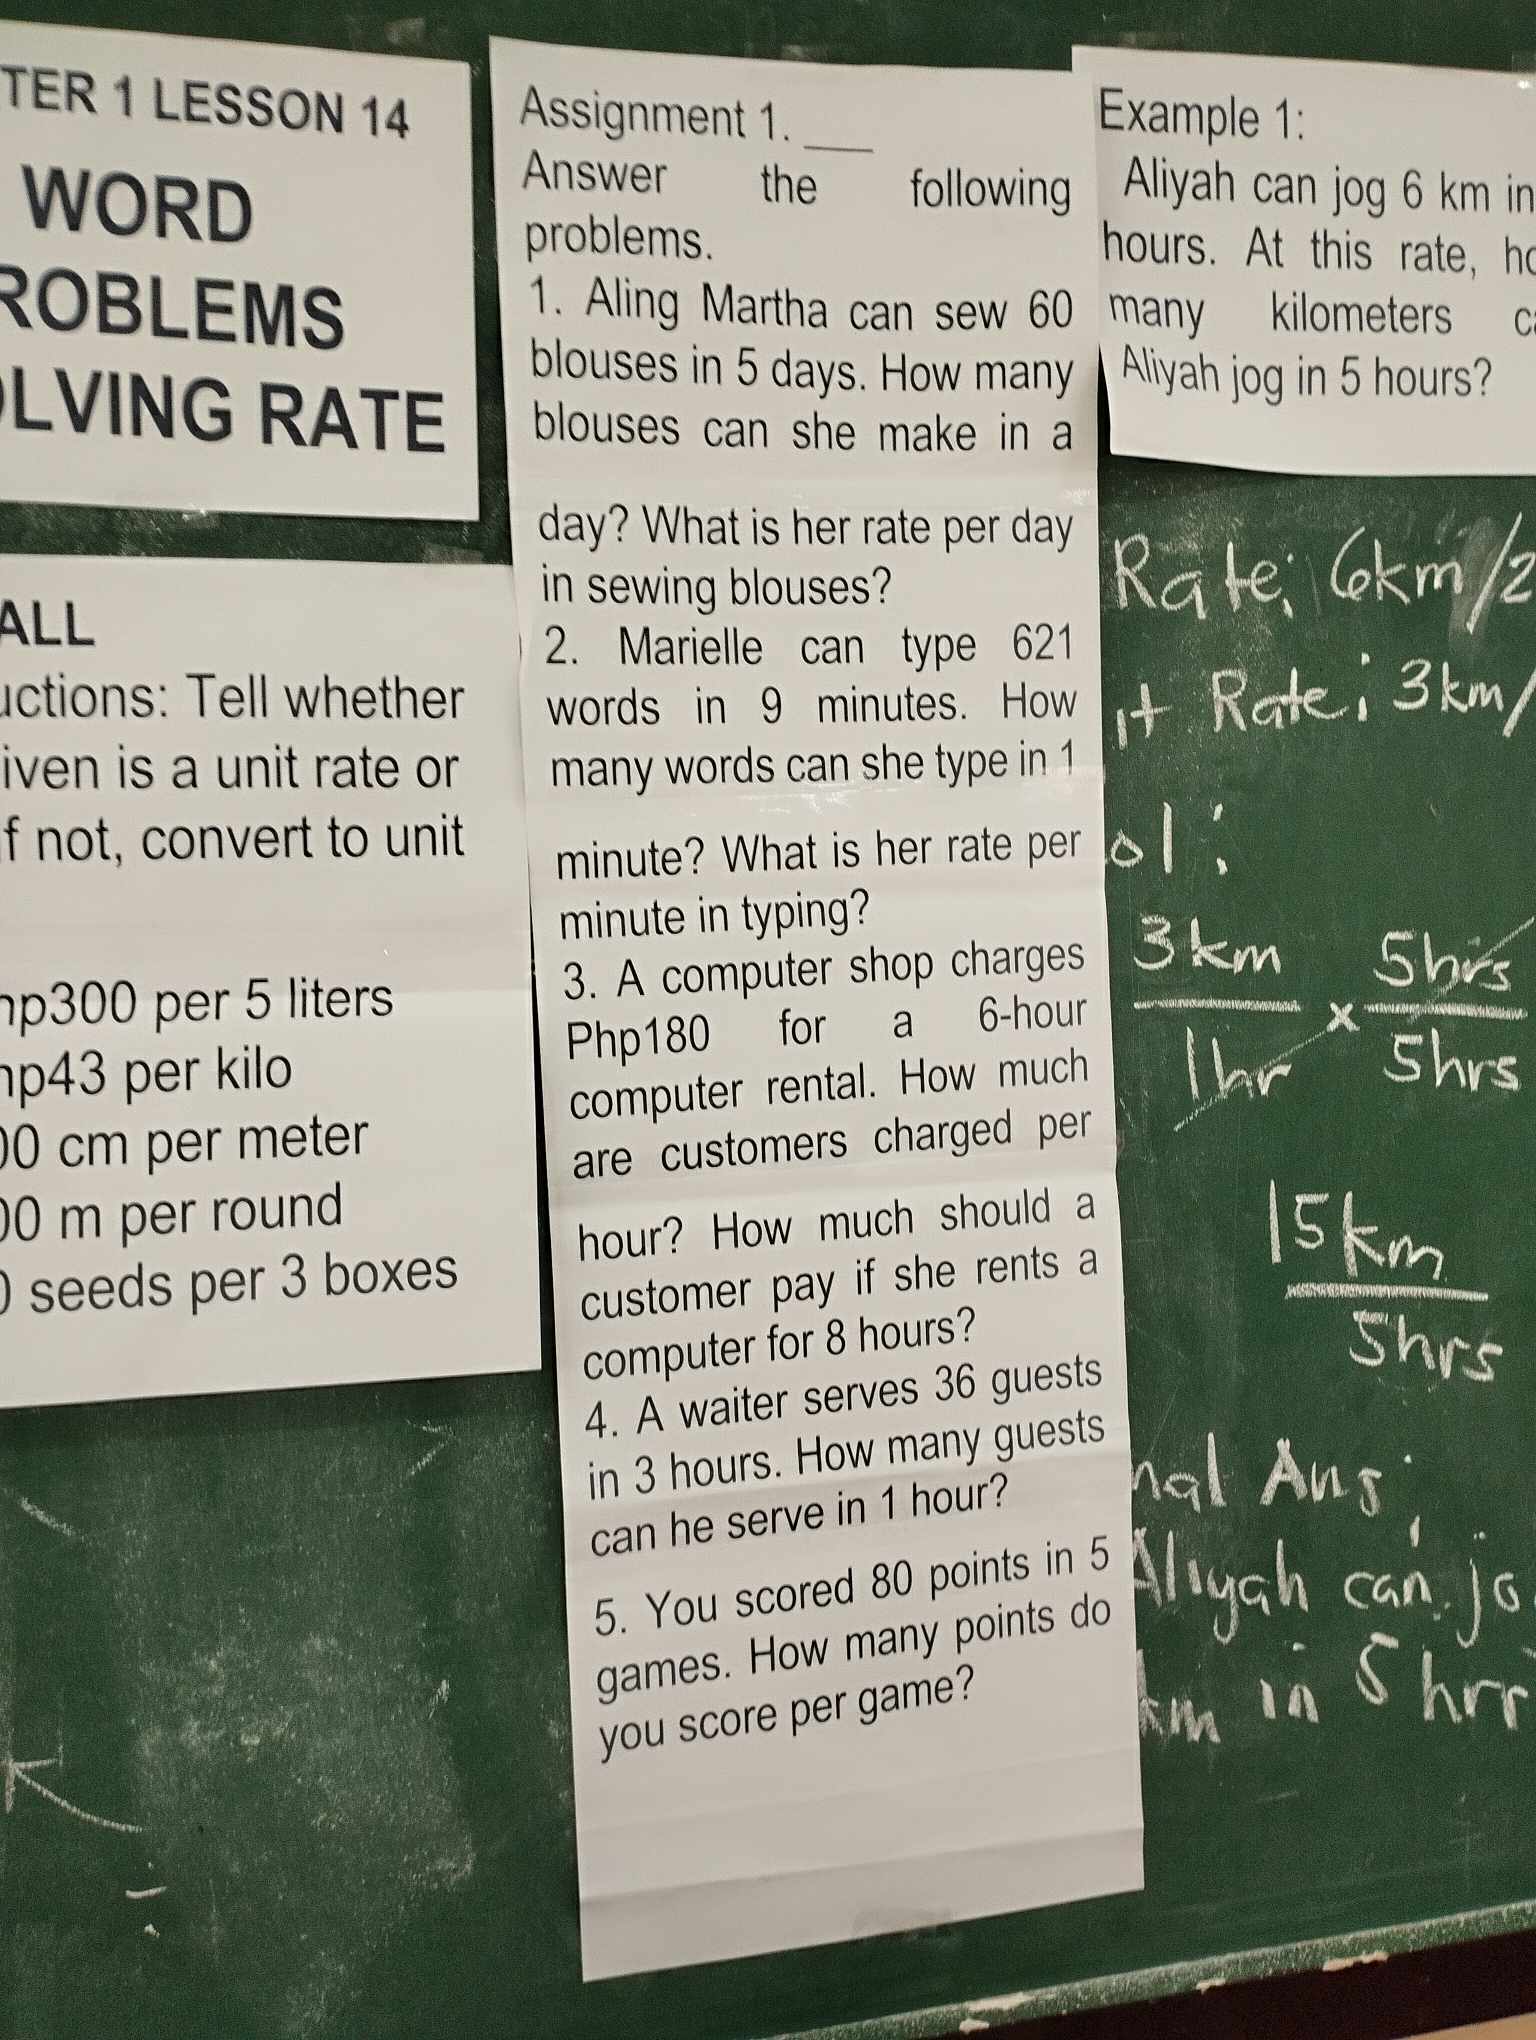 TER 1 LESSON 14
WORD
ROBLEMS
OLVING RATE
ALL
uctions: Tell whether
iven is a unit rate or
f not, convert to unit
hp300 per 5 liters
hp43 per kilo
00 cm per meter
00 m per round
0 seeds per 3 boxes
Assignment 1. ___
Answer the following
problems.
1. Aling Martha can sew 60
blouses in 5 days. How many
blouses can she make in a
day? What is her rate per day
in sewing blouses?
2. Marielle can type 621
words in 9 minutes. How
many words can she type in 1
minute? What is her rate per
minute in typing?
3. A computer shop charges
Php180 for a 6-hour
computer rental. How much
are customers charged per
hour? How much should a
customer pay if she rents a
computer for 8 hours?
4. A waiter serves 36 guests
in 3 hours. How many guests
can he serve in 1 hour?
5. You scored 80 points in 5
games. How many points do
you score per game?
Example 1:
Aliyah can jog 6 km in
hours. At this rate, ho
many kilometers ca
Aliyah jog in 5 hours?
Rate: 6km/2
it Rate: 3km/
ol:
3km x 5hrs
1hr 5hrs
15km
5hrs
nal Ans:
Aliyah can jo
km in 5 hrs